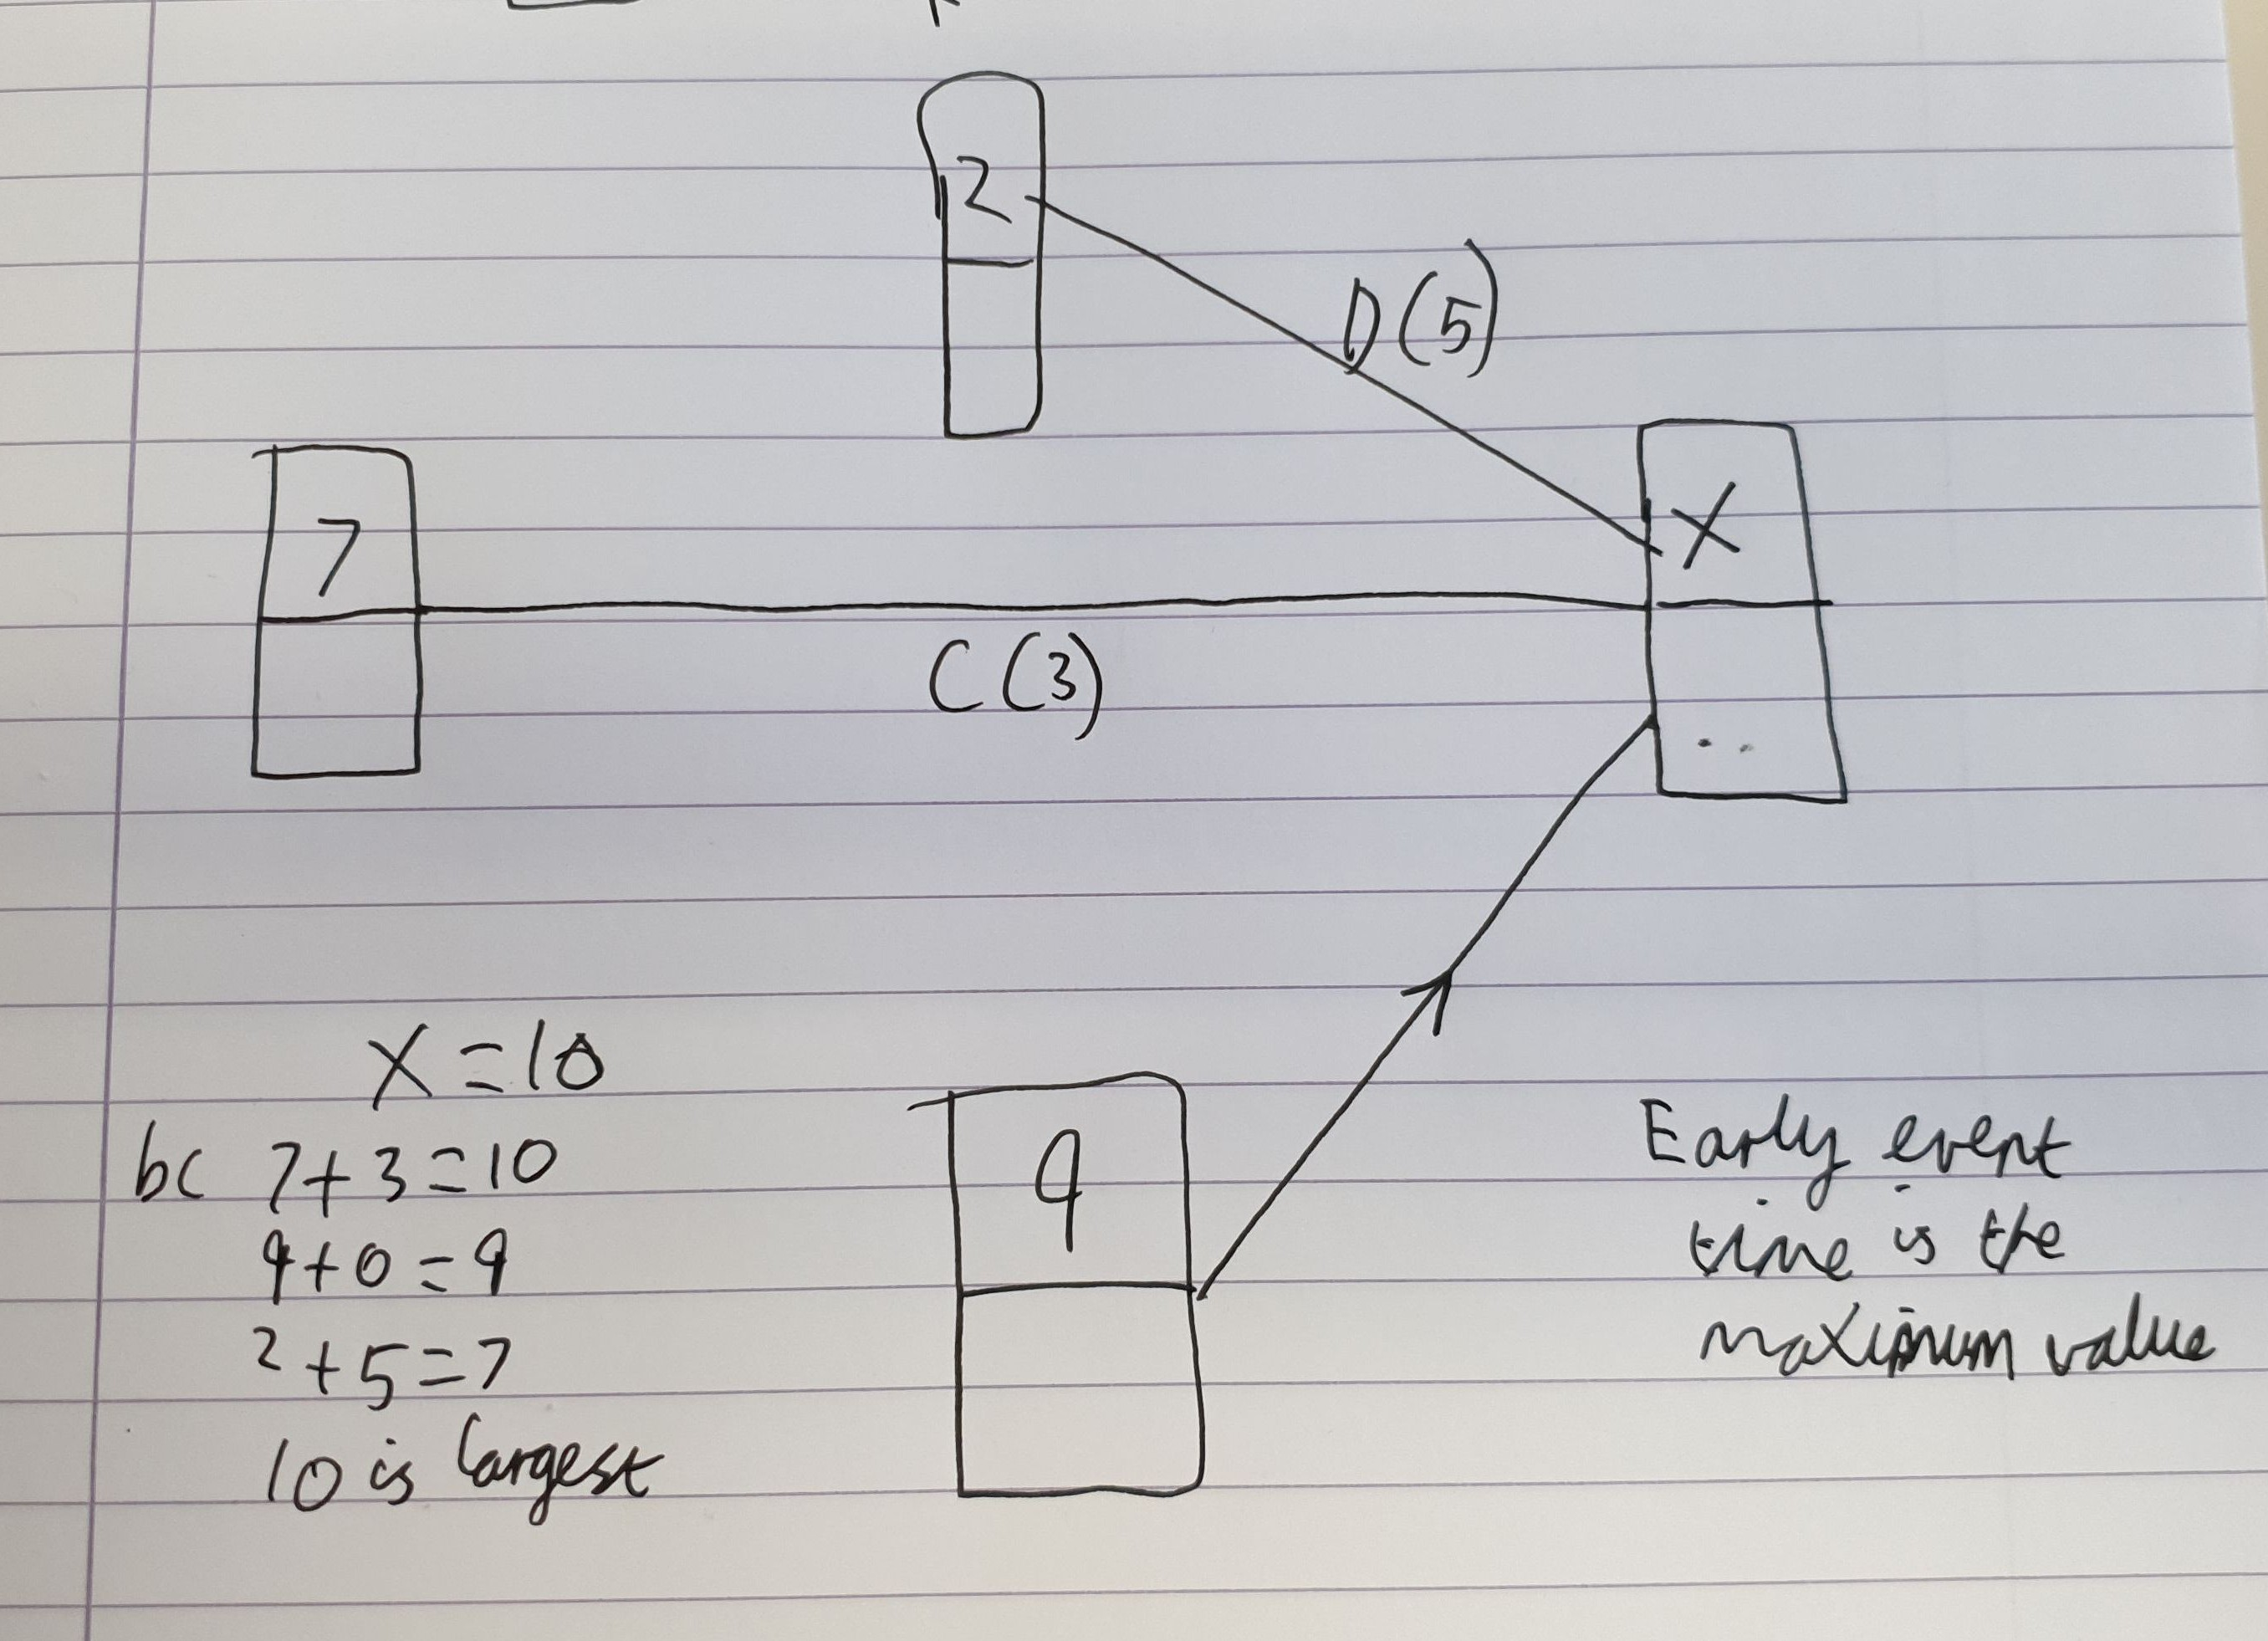 2
D(5)
7
X
C(3)
X=10
bc 7+3=10
9+0=9
2+5=7
10 is largest
9
Early event
time is the
maximum value